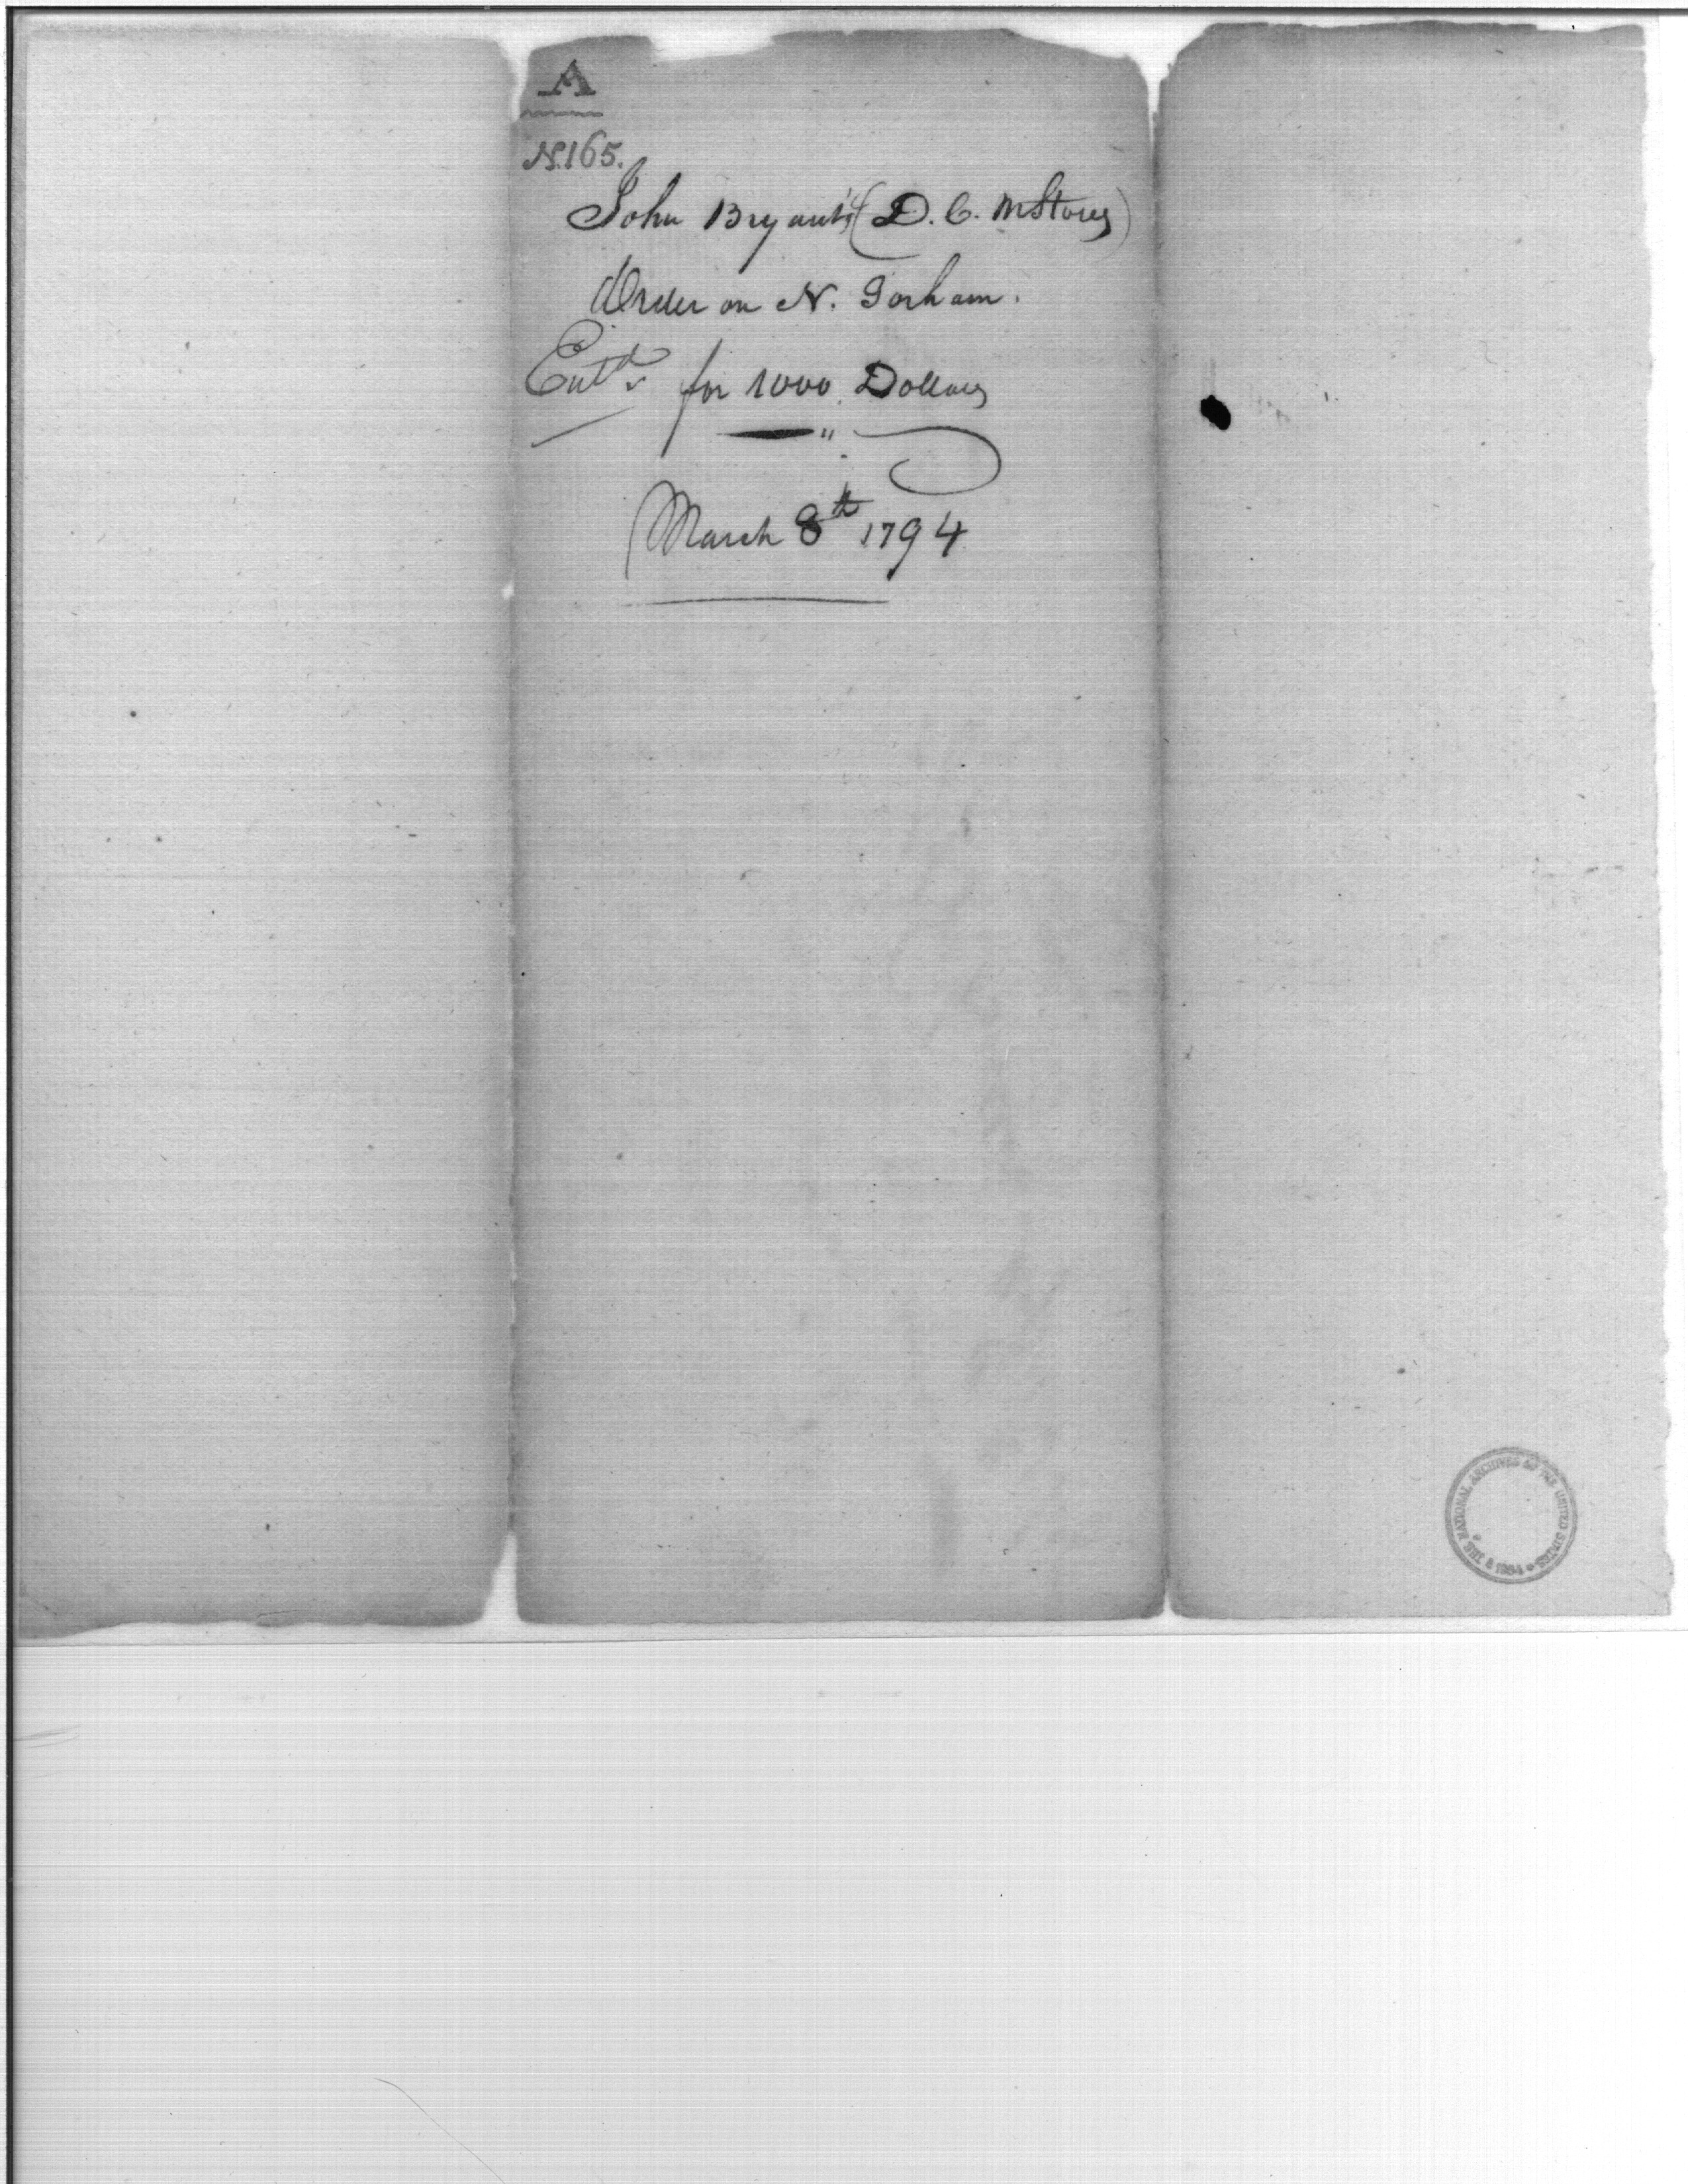 A
No. 165.
John Bryant's (D. C. M Stores)
Order on N. Gorham.
Entd. for 1000 Dollars
March 8th 1794
THE NATIONAL ARCHIVES OF THE UNITED STATES 1934